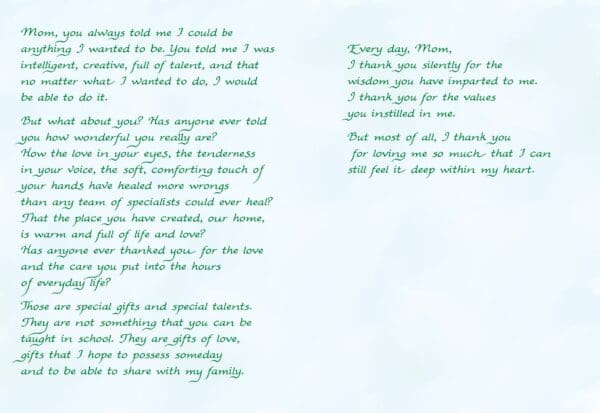 Mom, you always told me I could be
anything I wanted to be. You told me I was
intelligent, creative, full of talent, and that
no matter what I wanted to do, I would
be able to do it.
But what about you? Has anyone ever told
you how wonderful you really are?
How the love in your eyes, the tenderness
in your voice, the soft, comforting touch of
your hands have healed more wrongs
than any team of specialists could ever heal?
That the place you have created, our home,
is warm and full of life and love?
Has anyone ever thanked you for the love
and the care you put into the hours
of everyday life?
Those are special gifts and special talents.
They are not something that you can be
taught in school. They are gifts of love,
gifts that I hope to possess someday
and to be able to share with my family.
Every day, Mom,
I thank you silently for the
wisdom you have imparted to me.
I thank you for the values
you instilled in me.
But most of all, I thank you
for loving me so much that I can
still feel it deep within my heart.